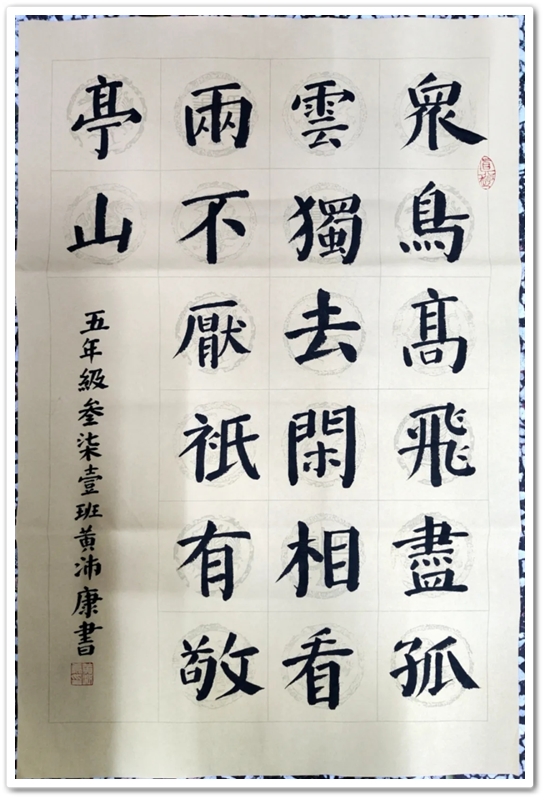 眾鳥高飛盡孤
雲獨去閑相看
兩不厭衹有敬
亭山
五年級叄柒壹班黃沛康書